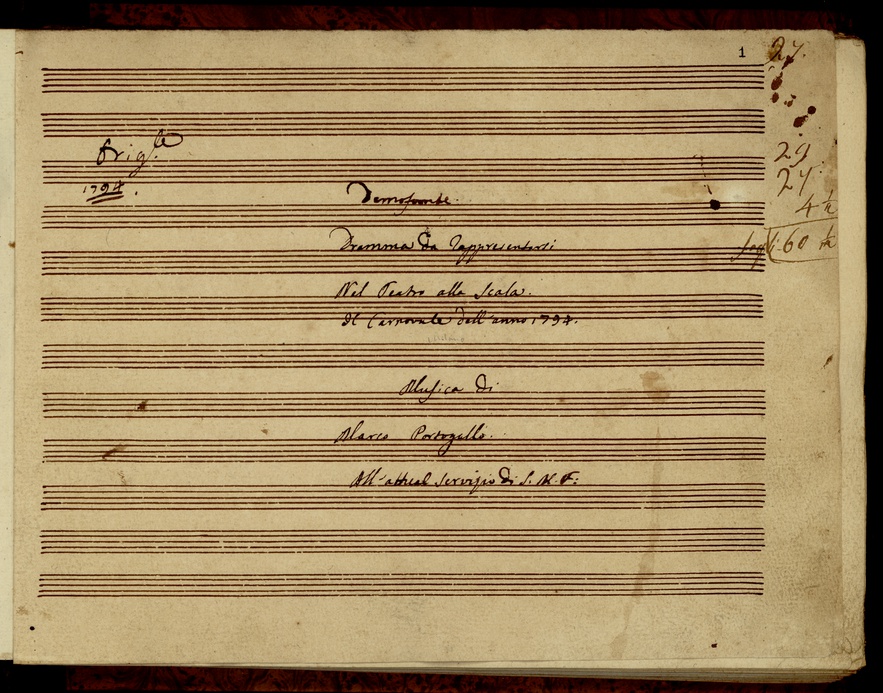 1
27.
Orig.le
1794.
29
27
4 1/2
fogli: 60 1/2
Demofoonte.
Dramma da Rappresentarsi
Nel Teatro alla Scala.
Il Carnovale dell'anno 1794.
Musica di
Marco Portogallo.
All'attual servizio di S. M. F: